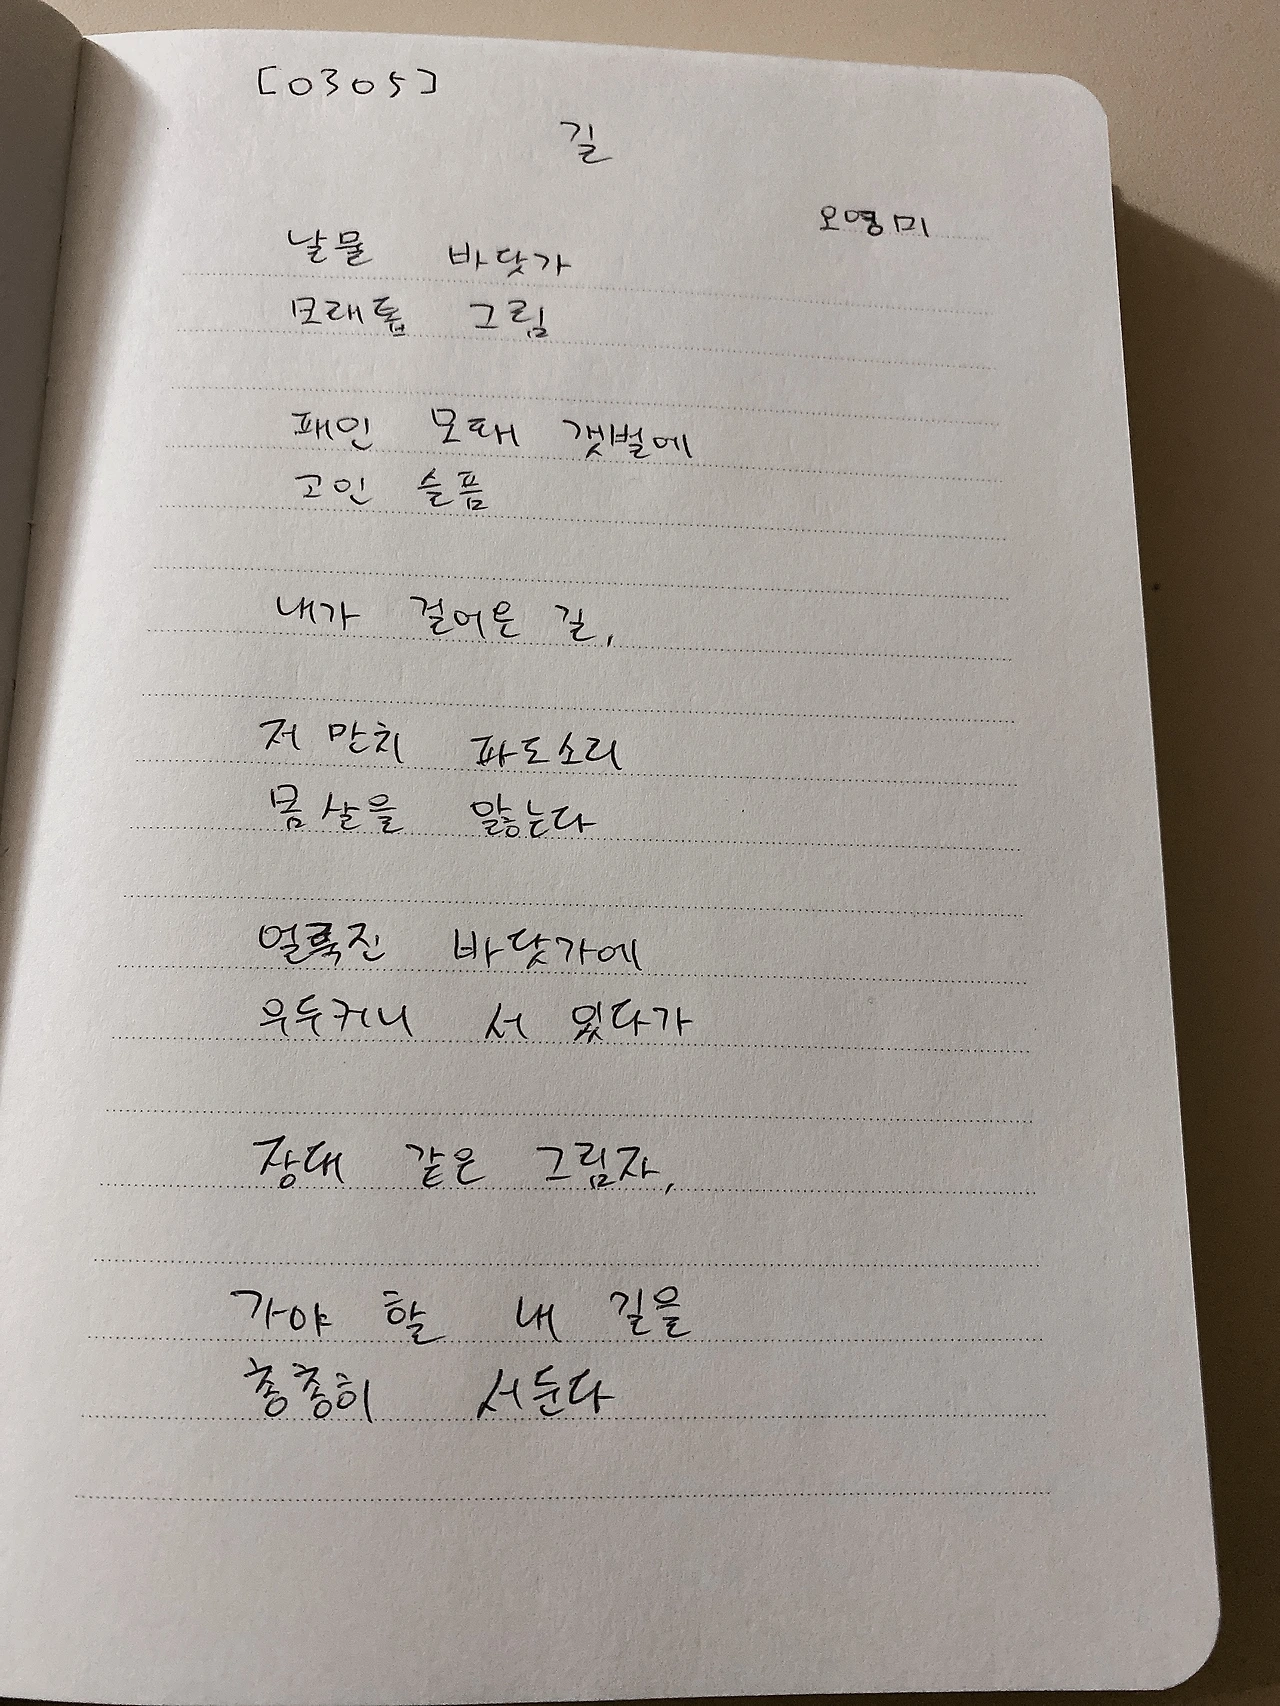 [0305]
길
오영미
날물 바닷가
모래톱 그림
패인 모래 갯벌에
고인 슬픔
내가 걸어온 길,
저 만치 파도소리
몸살을 앓는다
얼룩진 바닷가에
우두커니 서 있다가
장대 같은 그림자,
가야 할 내 길을
총총히 서둔다